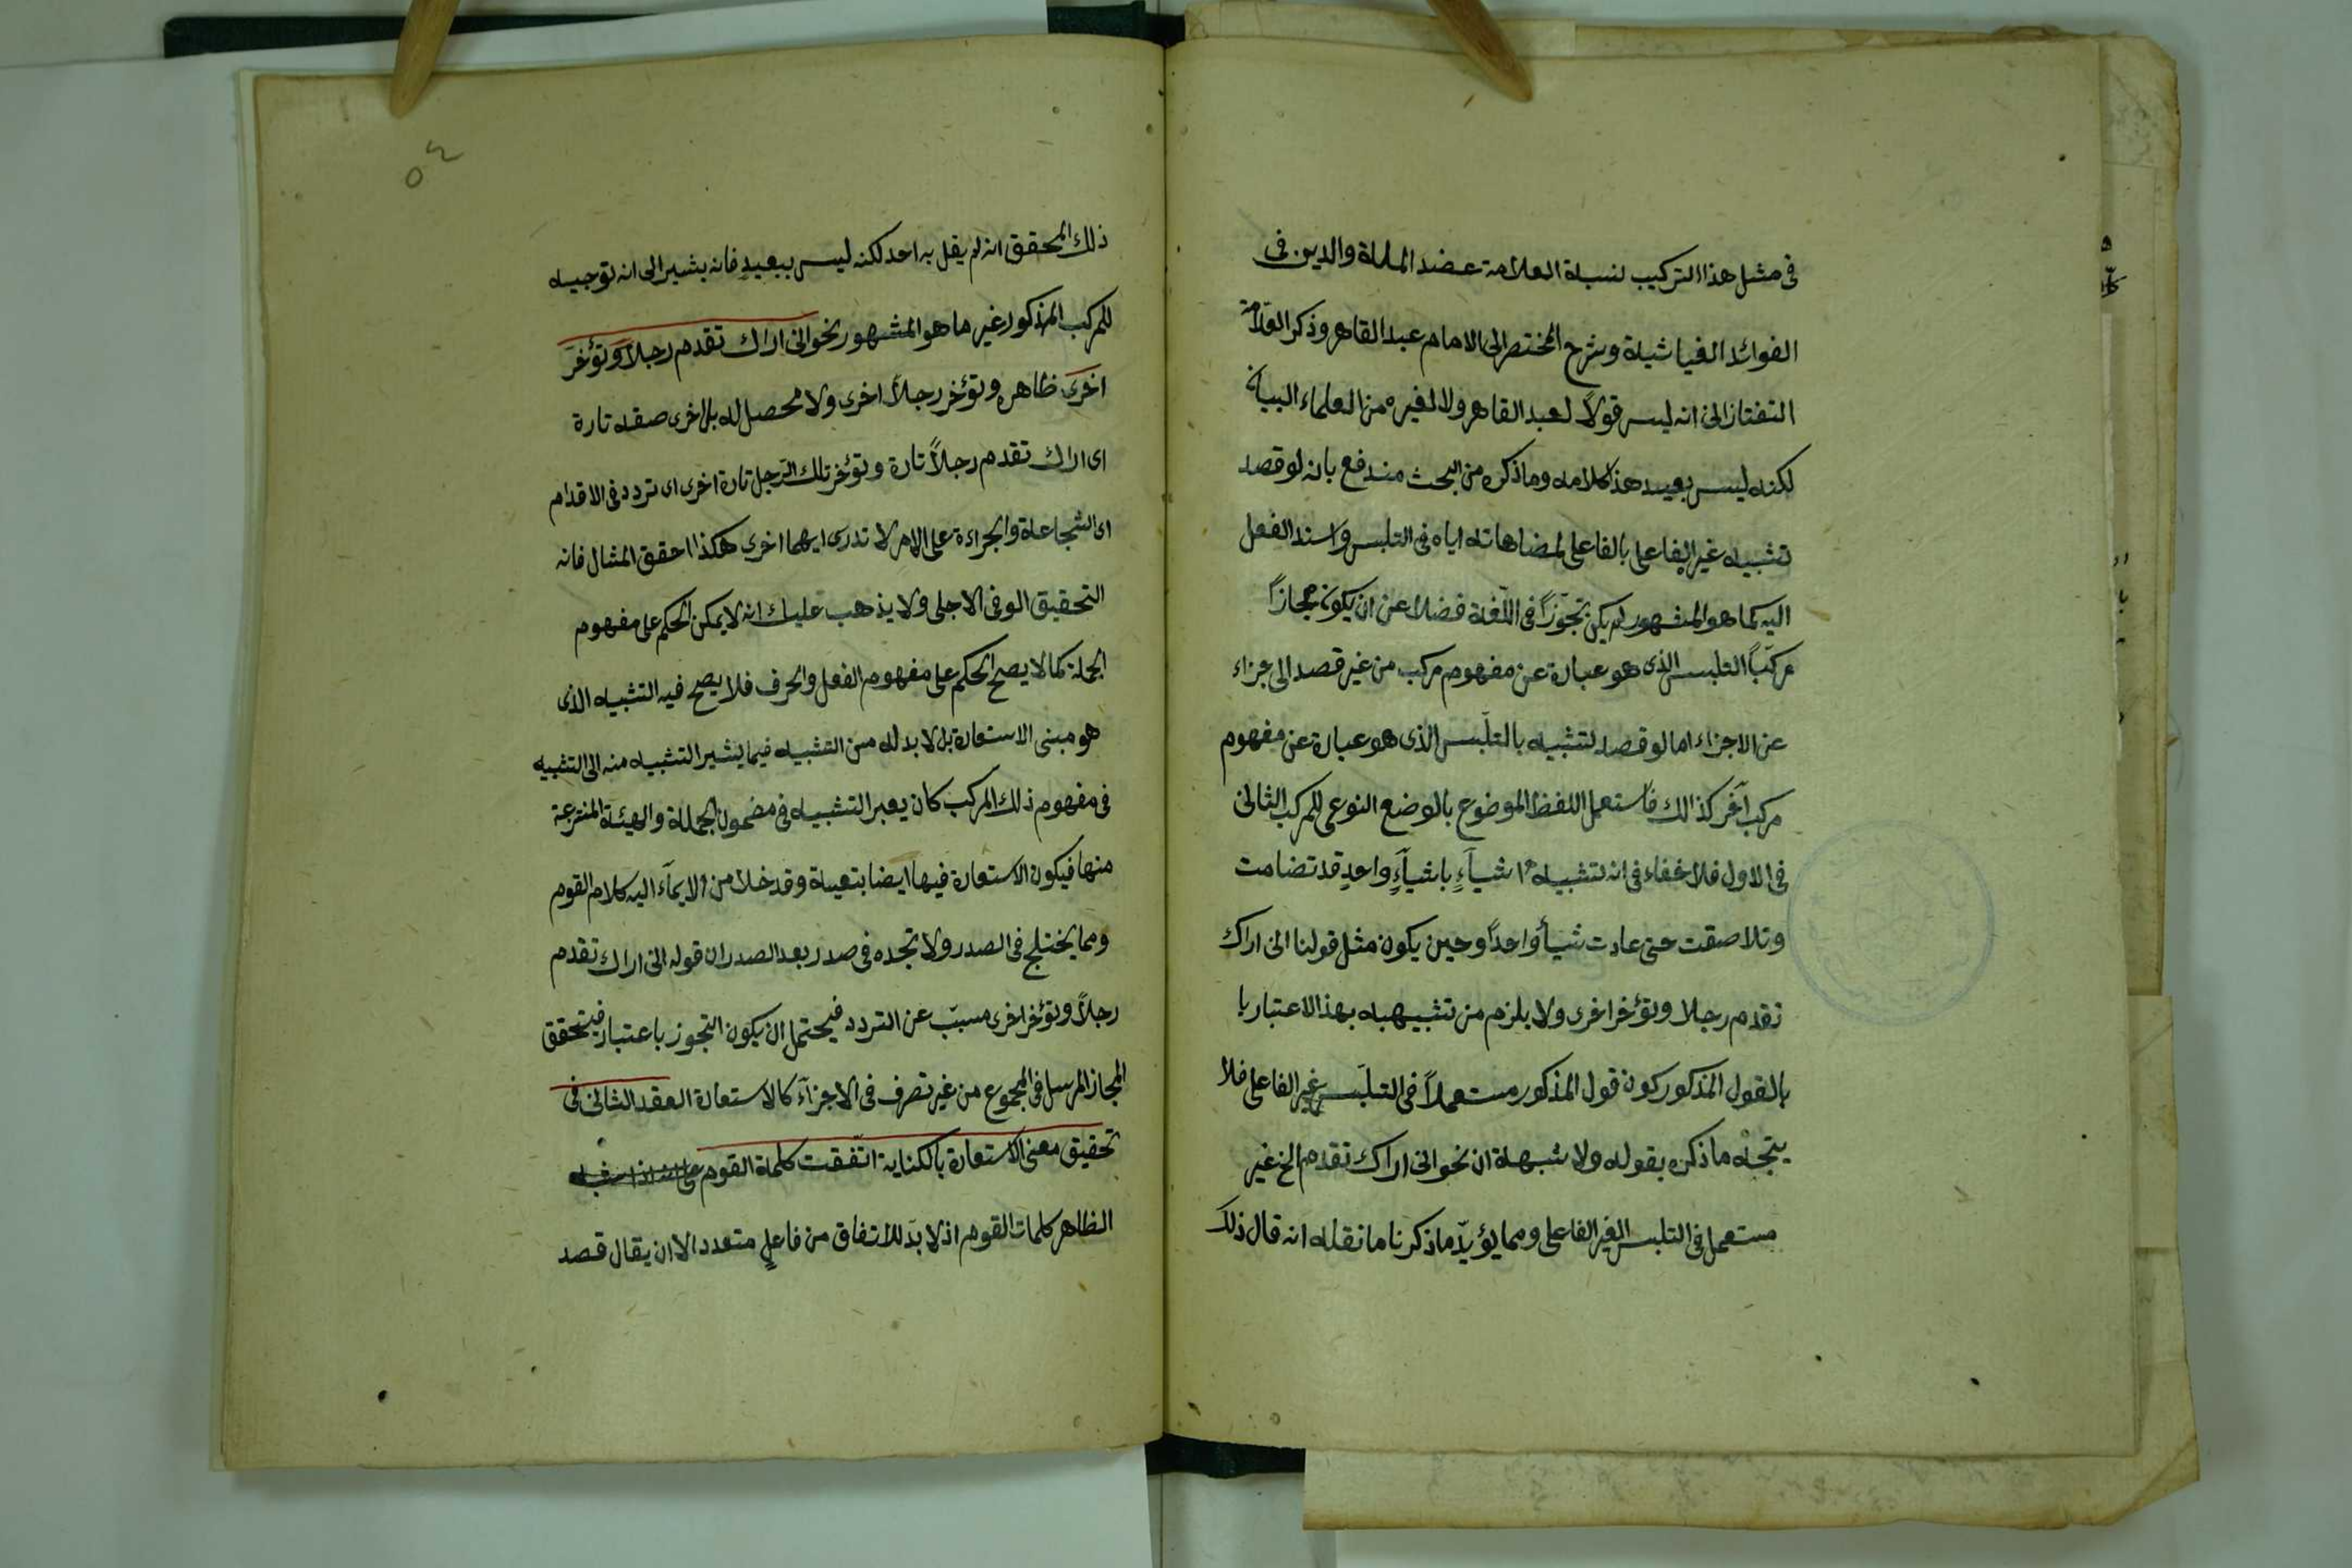 فى مثل هذا التركيب لنسبة العلامة عضد الملة والدين فى
الفوائد الغياثية وشرح المختصر الى الامام عبد القاهر وذكر العلامة
التفتازانى انه ليس قولاً لعبد القاهر ولا لغيره من العلماء البيان
لكنه ليس بعيد هذا كلامه وما ذكره من البحث مندفع بانه لو قصد
تشبيه غير الفاعلى بالفاعلى لمضاهاته اياه فى التلبس واسند الفعل
اليه كما هو المشهور لم يكن تجوّزاً فى اللّغة فضلا عن ان يكون مجازاً
مركباً التلبس الذى هو عبارة عن مفهوم مركب من غير قصد الى جزاء
عن الاجزاء اما لو قصد لتشبيه بالتلبس الذى هو عبارة عن مفهوم
مركب آخر كذالك فاستعمل اللفظ الموضوع بالوضع النوعى للمركب الثانى
فى الاول فلا خفاء فى انه تشبيه اشياءٍ باشياءٍ واحدٍ قد تضامت
وتلاصقت حتى عادت شيأ واحداً وحين يكون مثل قولنا انى اراك
تقدم رجلا وتؤخر اخرى ولا يلزم من تشبيهه به بهذا الاعتبار با
بالقول المذكور كون قول المذكور مستعملاً فى التلبّس غير الفاعلى فلا
يتجه ما ذكره بقوله ولا شبهة ان نحو انى اراك تقدم الخ غير
مستعمل فى التلبس الغير الفاعلى ومما يؤيدّ ما ذكرنا ما نقله انه قال ذلك
٥٤
ذلك المحقق انه لم يقل به احد لكنه ليس ببعيدٍ فانه يشير الى انه توجيه
للمركب المذكور غير ما هو المشهور نحو انى اراك تقدم رجلاً وتؤخر
اخرى ظاهره وتؤخر رجلاً اخرى ولا محصل له بل اخرى صفه تارة
اى اراك تقدم رجلاً تارة وتؤخر تلك الرّجل تارة اخرى اى تردد فى الاقدام
اى الشجاعة والجراءة على الامر لا تدرى ايهما اخرى هكذا احقق المثال فانه
التحقيق الوفى الاجلى ولا يذهب عليك انه لا يمكن الحكم على مفهوم
الجملة كما لا يصح الحكم على مفهوم الفعل والحرف فلا يصح فيه التشبيه الذى
هو مبنى الاستعارة بل لا بد له من التشبيه فيما يشير التشبيه منه الى التشبيه
فى مفهوم ذلك المركب كان يعبر التشبيه فى مضمون الجملة والهيئة المنتزعة
منها فيكون الاستعارة فيها ايضا بتعية وقد خلا من الايمآء اليه كلام القوم
ومما يختلج فى الصدر ولا تجده فى صدر بعد الصدر ان قوله انى اراك تقدم
رجلاً وتؤخر اخرى مسبّب عن التردد فيحتمل ان يكون التجوز باعتبار فيتحقق
المجاز المرسل فى المجموع من غير تصرف فى الاجزآء كالاستعارة العقد الثانى فى
تحقيق معنى الاستعارة بالكناية اتفّقت كلمة القوم
الظاهر كلمات القوم اذ لا بدّ للاتفاق من فاعلٍ متعدد الا ان يقال قصد